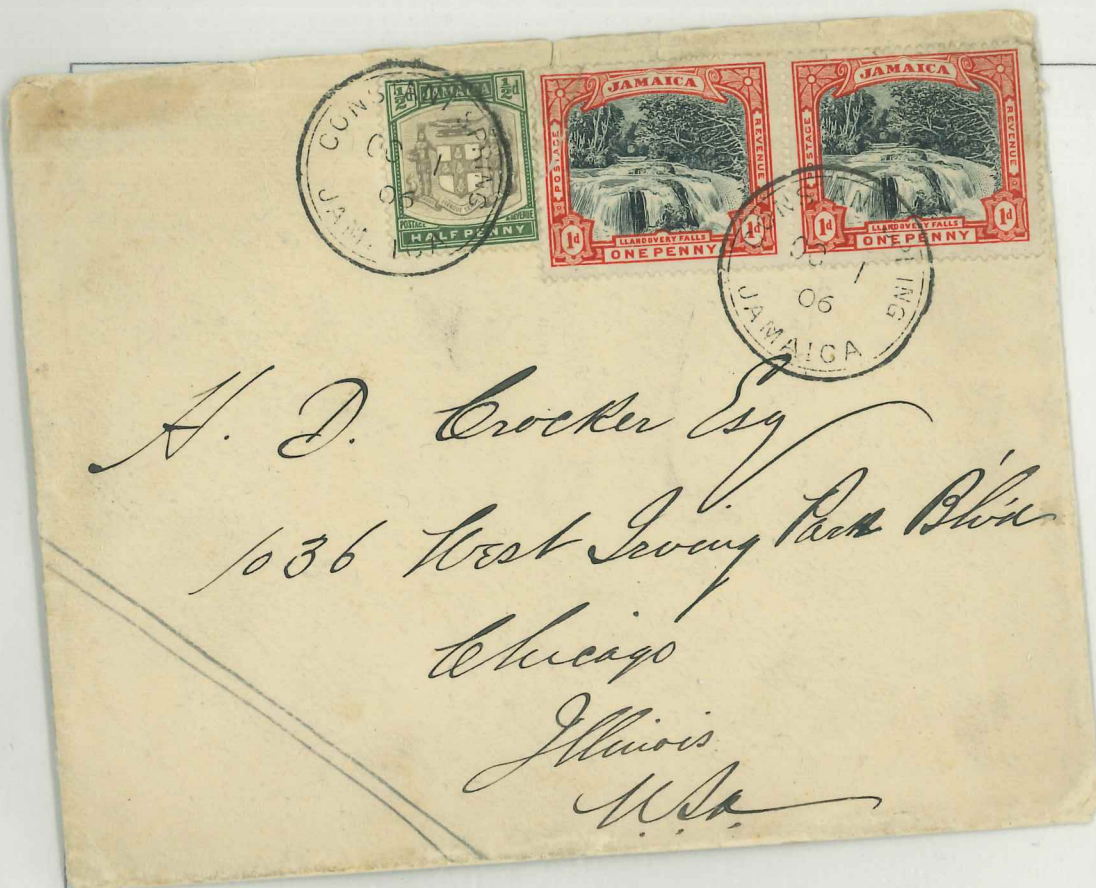 CONSTANT SPRING
OC 1
06
JAMAICA
½d JAMAICA ½d
POSTAGE & REVENUE
HALFPENNY
JAMAICA
POSTAGE REVENUE
1d LLANDOVERY FALLS 1d
ONE PENNY
JAMAICA
POSTAGE REVENUE
1d LLANDOVERY FALLS 1d
ONE PENNY
CONSTANT SPRING
OC 1
06
JAMAICA
H. D. Crocker Esq
1036 West Irving Park Blv'd
Chicago
Illinois
U.S.a.